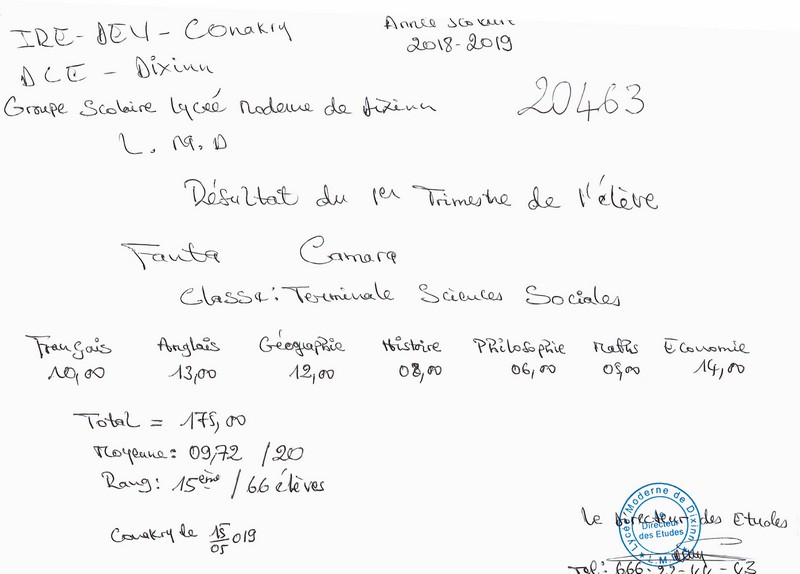 IRE-DEV-Conakry
Année scolaire
2018-2019
DCE - Dixinn
Groupe Scolaire Lyceé Moderne de Dixinn
20463
L. M. D
Résultat du 1er Trimestre de l'élève
Fanta Camara
Classe: Terminale Sciences Sociales
Français Anglais Géographie Histoire Philosophie Maths Economie
10,00 13,00 12,00 08,00 06,00 05,00 14,00
Total = 175,00
Moyenne: 09,72 /20
Rang: 15ème / 66 élèves
Conakry le 15/05 019
Le Directeur des Etudes
Lycée Moderne de Dixinn
Le Directeur des Etudes
L.M.
Tel: 666-